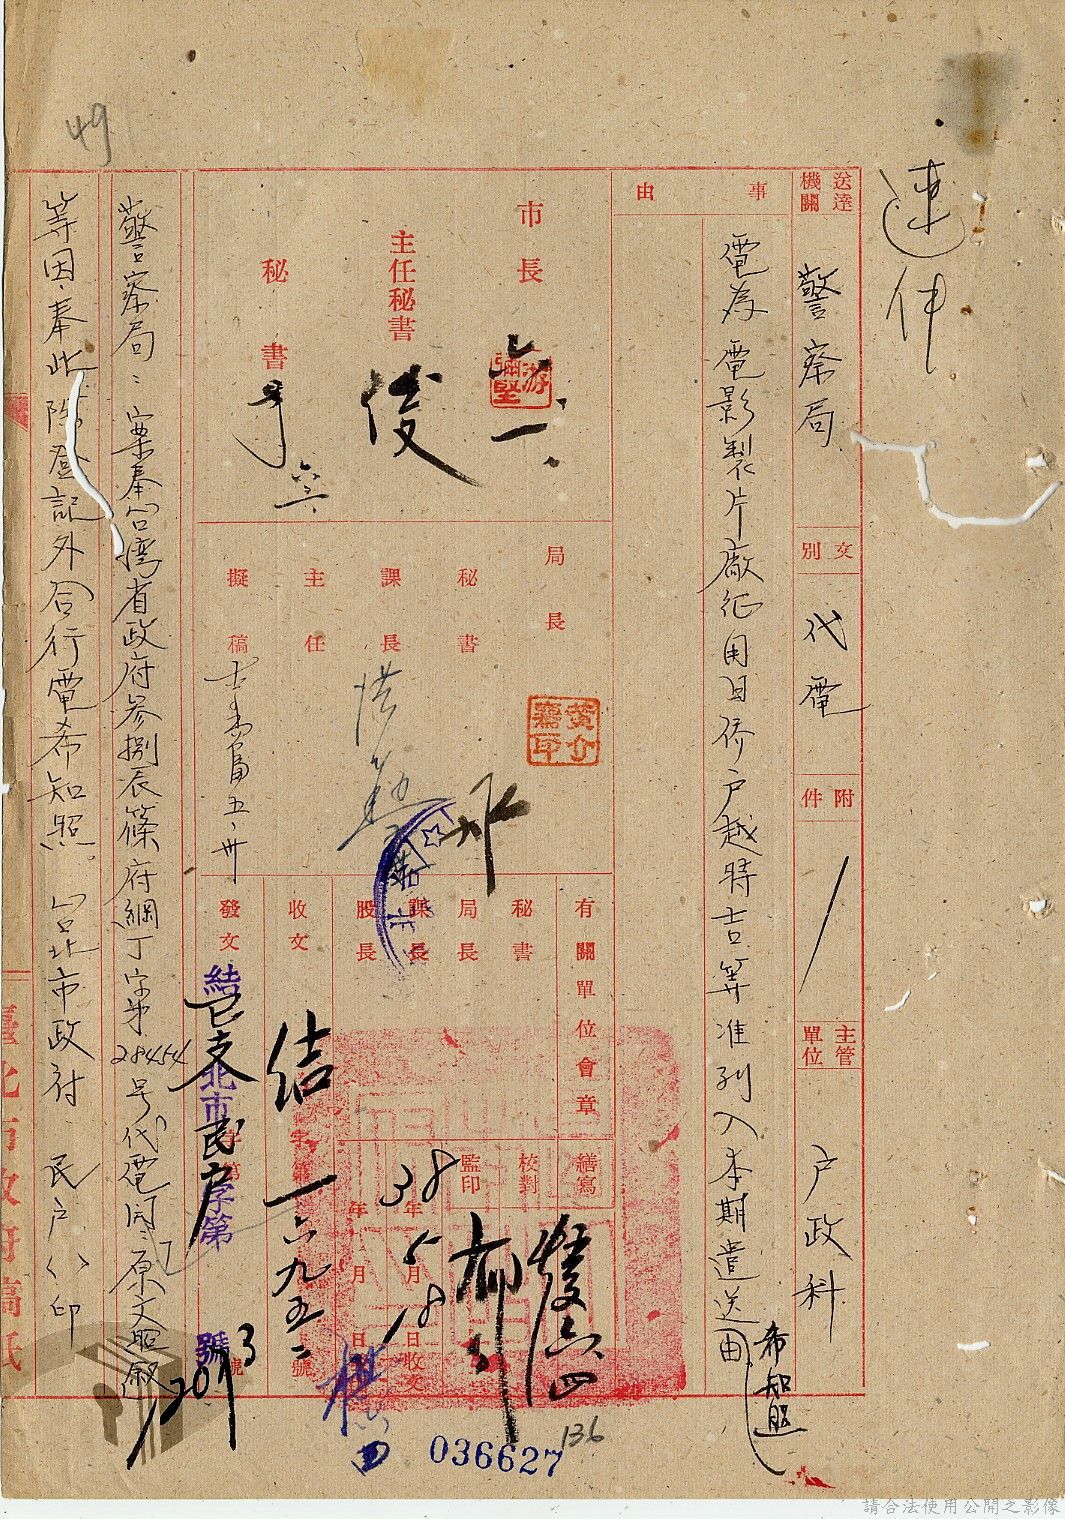 速件
送達機關
警察局
文別
代電
附件
主管單位
户政科
事由
電為電影製片廠征用日僑户越時吉等准列入本期遣送由
希知照
市長
游彌堅
六一
主任秘書
秘書
局長
秘書
課長
主任
擬稿
五、卅
有關單位會章
秘書
局長
課長
股長
收文
發文
繕寫
校對
監印
38年5月18日收文
年月日
字第
號
結
一六九五二
北市
字第
號
民户
2013
036627
136
警察局：案奉台灣省政府參捌辰篠府綱丁字第28454号代電開：原文照敘
等因、奉此、除登記外合行電希知照。台北市政府 民户 印
臺北市政府稿紙
49
請合法使用公開之影像